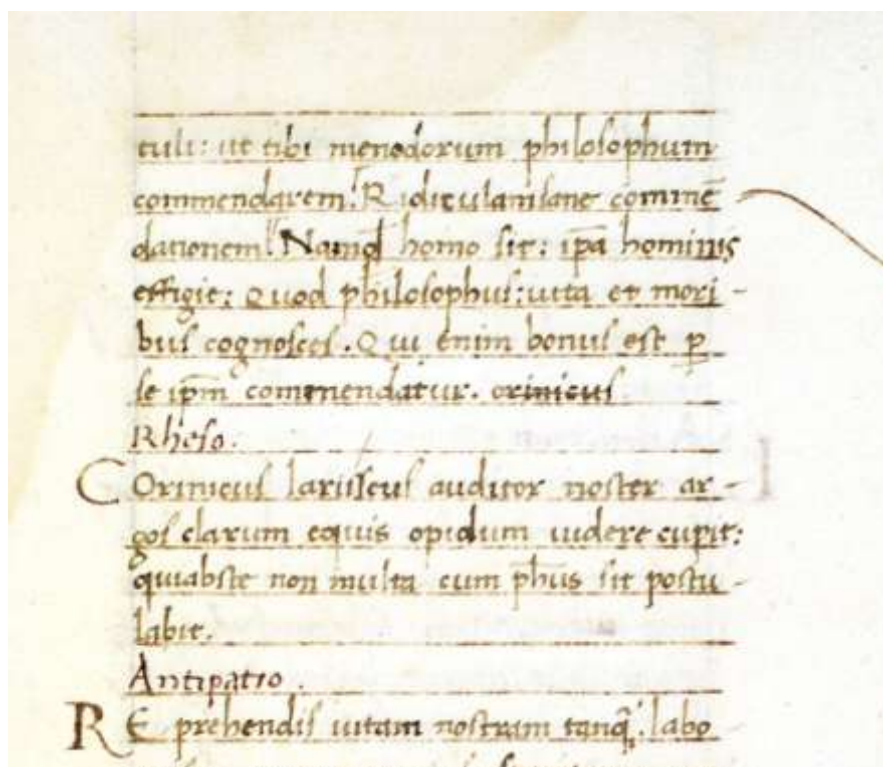 tuli: ut tibi menodorum philosophum
commendarem. Ridiculam sane commē
dationem. Nam qđ homo sit: ip̄a hominis
effigie: Quod philosophus: uita et mori-
bus cognosces. Qui enim bonus est p̱
se ip̄m commendatur. orinicus
Rheso.
COrinicus lariseus auditor noster ar-
gos clarum equis opidum uidere cupit:
qui abs te non multa cum ph̄us sit postu-
labit.
Antipatro.
RE prehendis uitam nostram tanq̄. labo